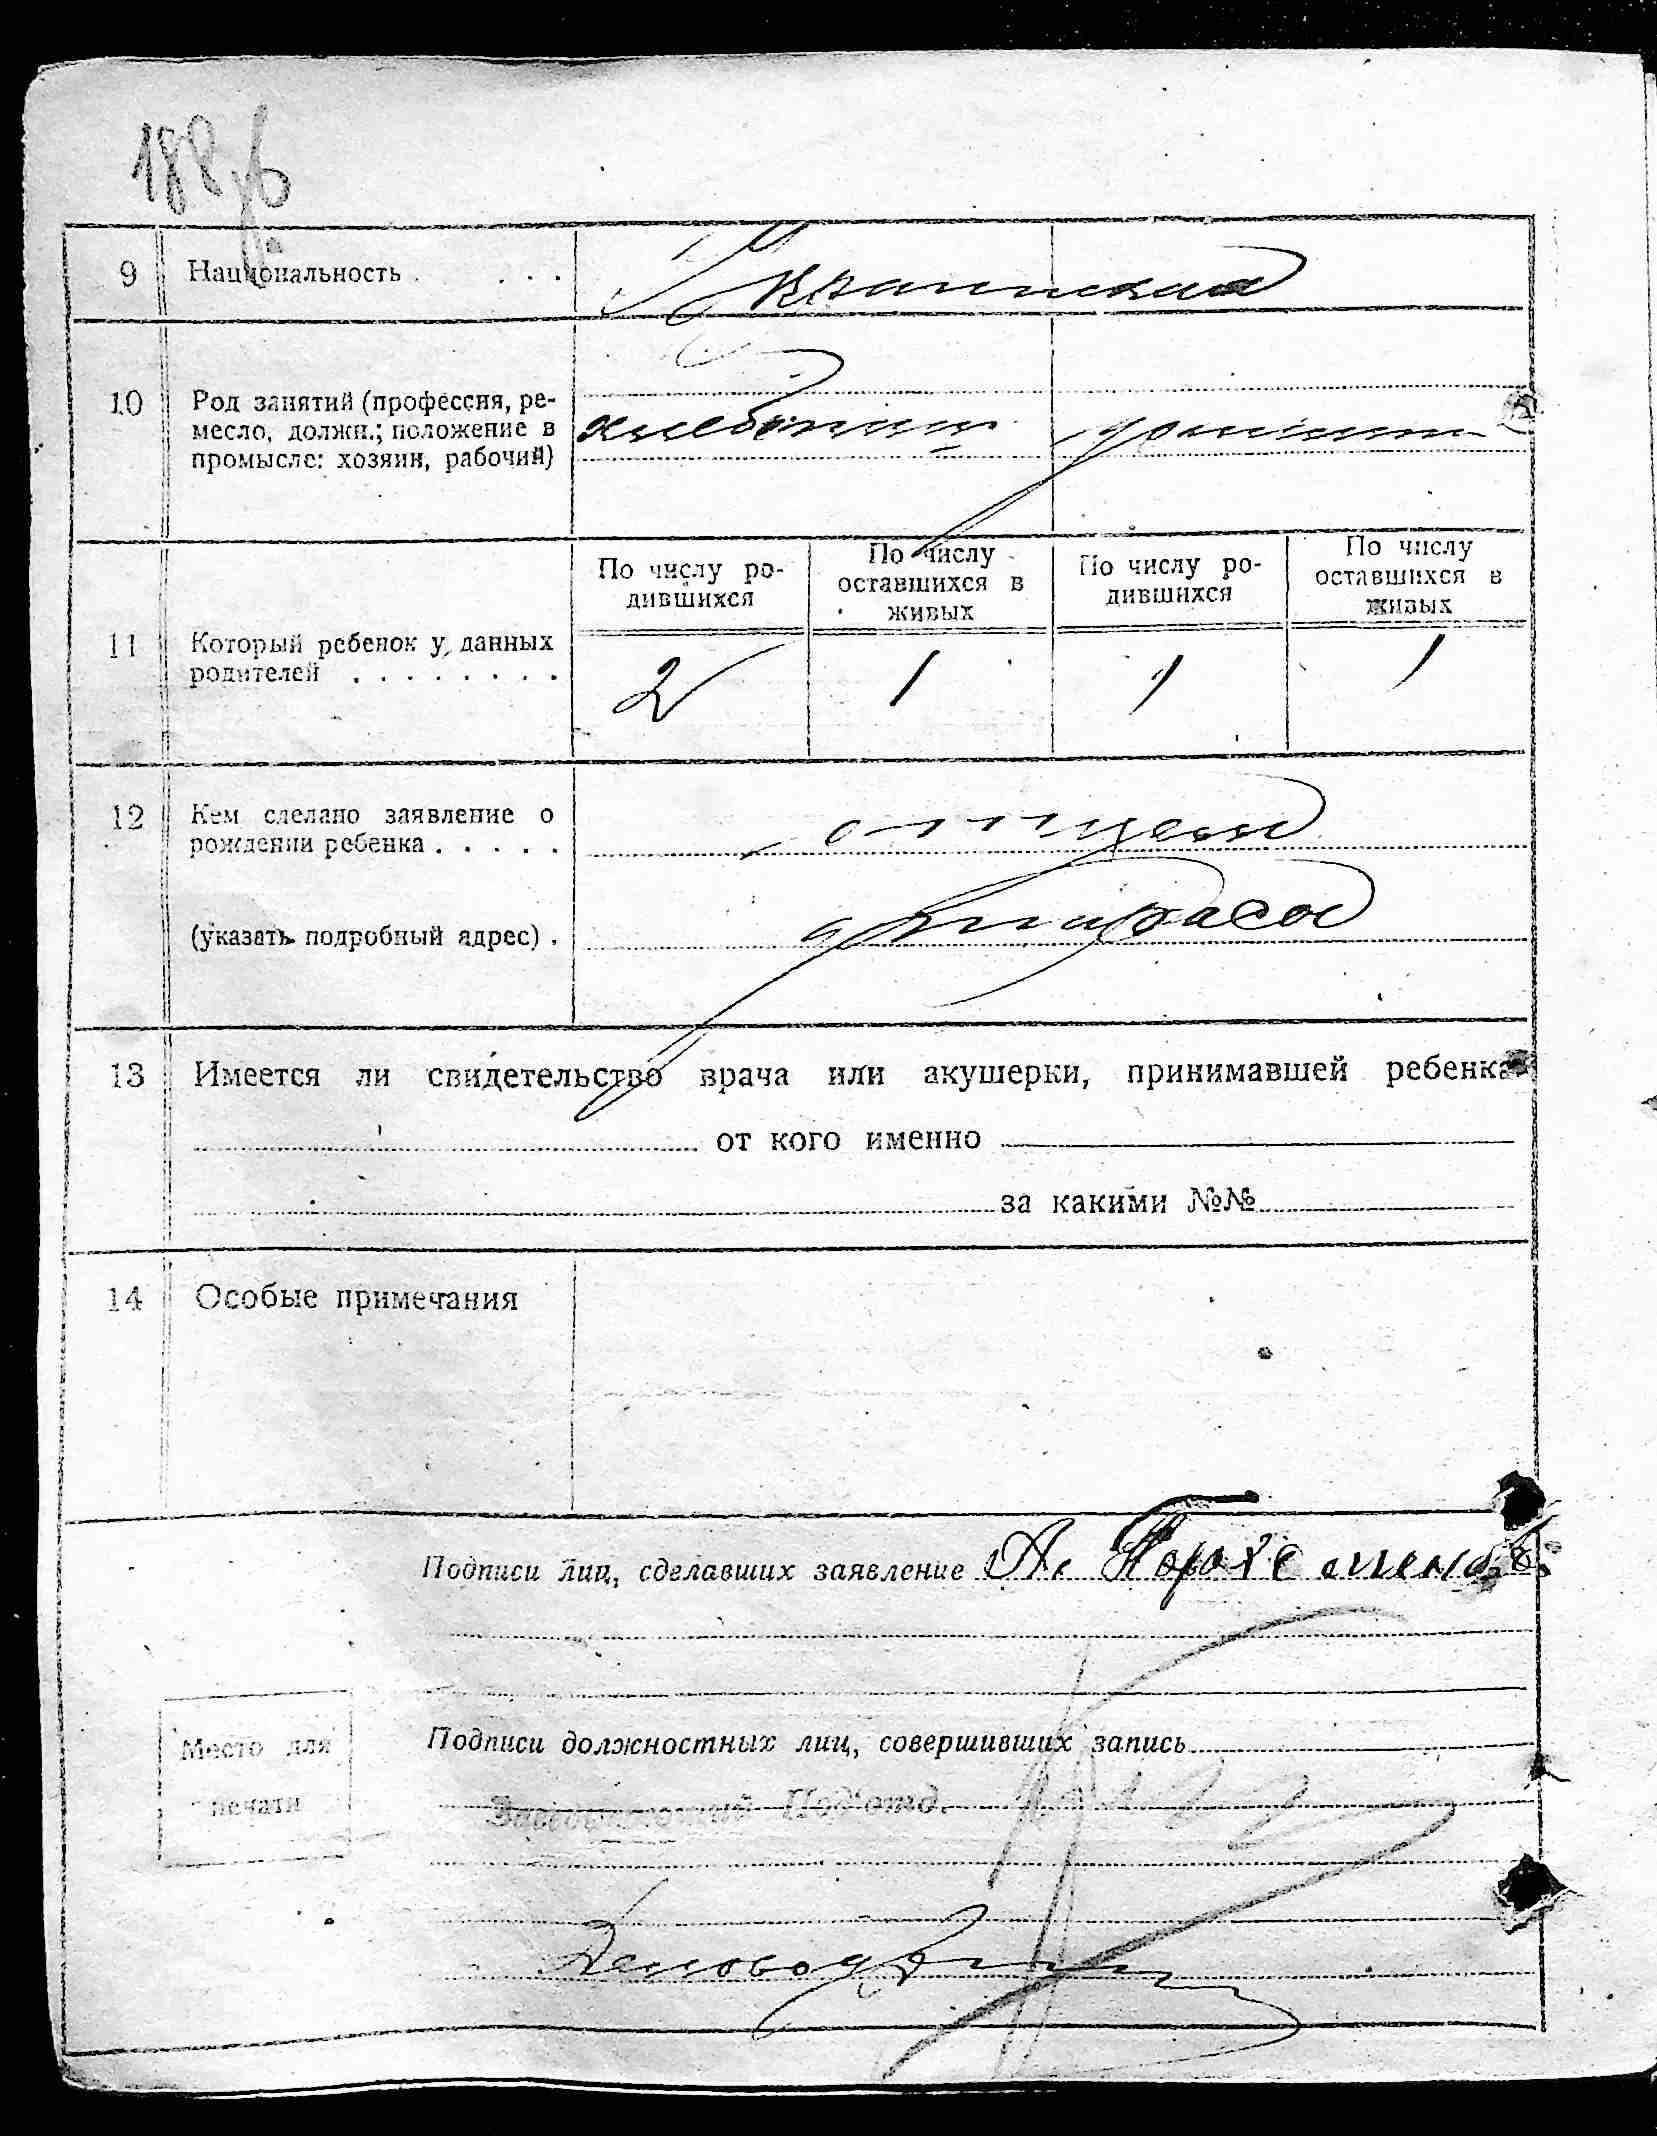 188
9 Национальность . . . . Украинская
10 Род занятий (профессия, ре-
месло, должн.; положение в
промысле: хозяин, рабочий)
По числу ро-
дившихся
По числу
оставшихся в
живых
По числу ро-
дившихся
По числу
оставшихся в
живых
11 Который ребенок у данных
родителей . . . . . . . .
2 1 1 1
12 Кем сделано заявление о
рождении ребенка . . . . . отцем
(указать подробный адрес) .
13 Имеется ли свидетельство врача или акушерки, принимавшей ребенка
от кого именно
за какими №№
14 Особые примечания
Подписи лиц, сделавших заявление А.
Место для
печати
Подписи должностных лиц, совершивших запись
Заведывающий Под'отд.
Деловод